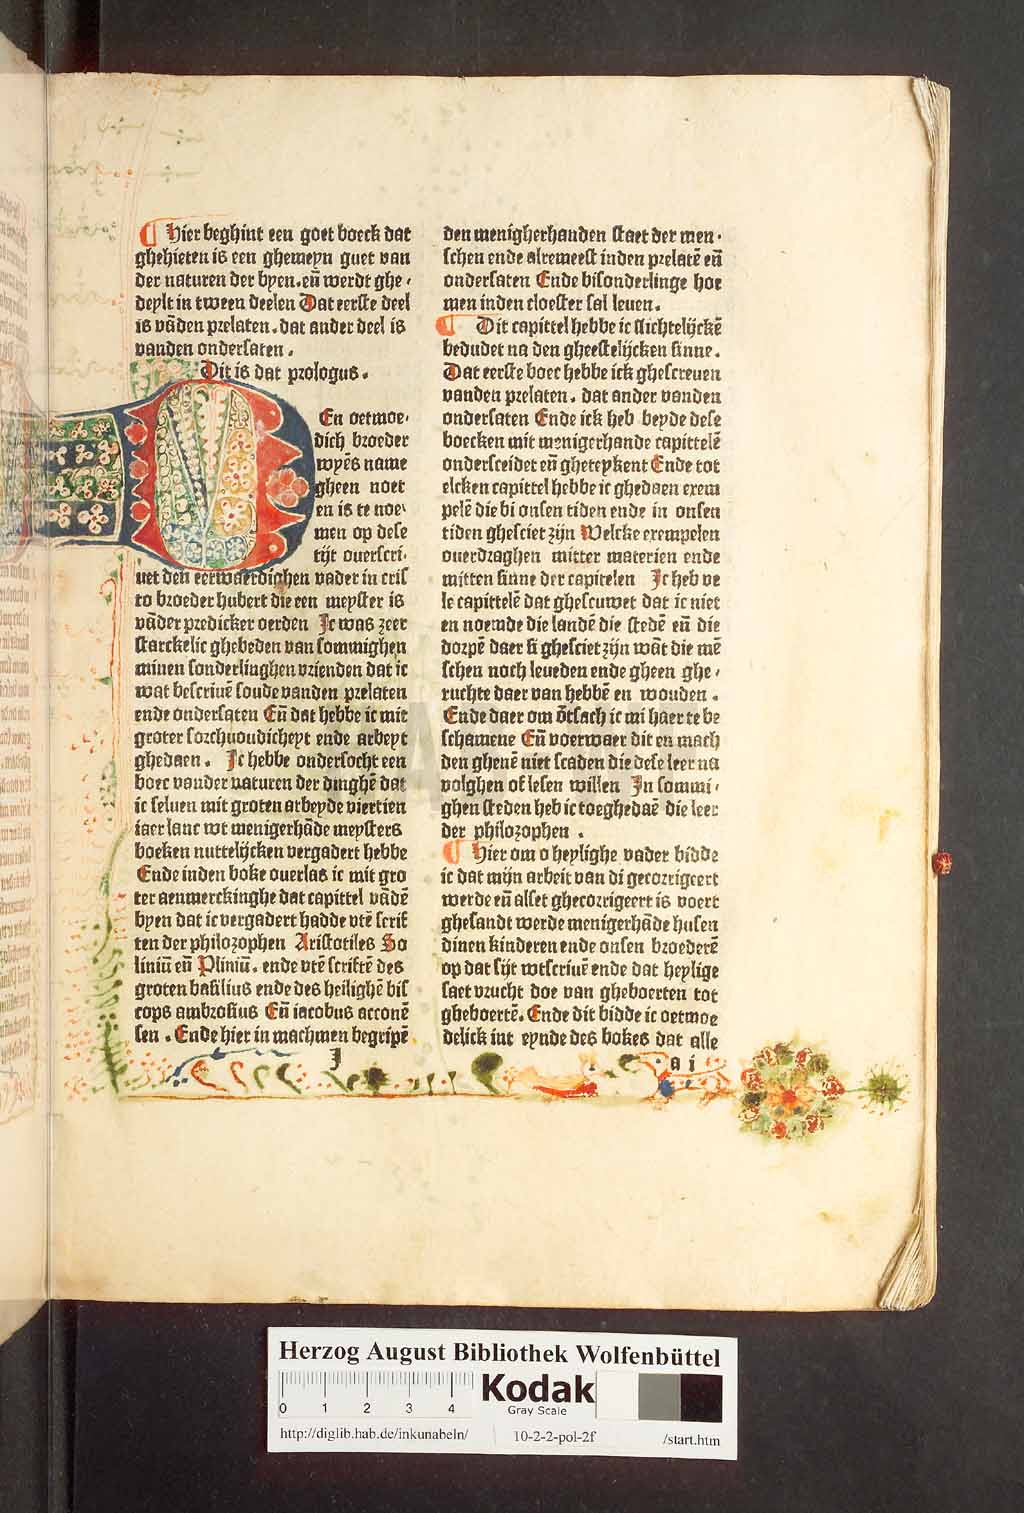 Hier beghint een goet boeck dat
ghehieten is een ghemeyn guet van
der naturen der byen. eñ werdt ghe-
deylt in tween deelen Dat eerste deel
is vāden prelaten. dat ander deel is
vanden ondersaten.
Dit is dat prologus.
En oetmoe-
dich broeder
wyēs name
gheen noet
en is te noe-
men op dese
tijt ouerscri-
uet den eerwaerdighen vader in cris
to broeder hubert die een meyster is
vāder predicker oerden Jc was zeer
starckelic ghebeden van sommighen
minen sonderlinghen vrienden dat ic
wat bescriuē soude vanden prelaten
ende ondersaten Eñ dat hebbe ic mit
groter sorchuoudicheyt ende arbeyt
ghedaen. Jc hebbe ondersocht een
boec vander naturen der dinghē dat
ic seluen mit groten arbeyde viertien
iaer lanc wt menigerhāde meysters
boeken nuttelijcken vergadert hebbe
Ende inden boke ouerlas ic mit gro
ter aenmerckinghe dat capittel vādē
byen dat ic vergadert hadde vtē scrif
ten der philozophen Aristotiles So
liniū eñ Pliniū. ende vtē scriftē des
groten basilius ende des heilighē bis
cops ambrosius Eñ iacobus acconē
sen. Ende hier in machmen begripē
J
den menigherhanden staet der men-
schen ende alremeest inden prelatē eñ
ondersaten Ende bisonderlinge hoe
men inden cloester sal leuen.
Dit capittel hebbe ic stichtelijckē
bedudet na den gheestelijcken sinne.
Dat eerste boec hebbe ick ghescreuen
vanden prelaten. dat ander vanden
ondersaten Ende ick heb beyde dese
boecken mit menigerhande capittelē
ondersceidet eñ gheteykent Ende tot
elcken capittel hebbe ic ghedaen exem
pelē die bi onsen tiden ende in onsen
tiden ghesciet zijn Welcke exempelen
ouerdraghen mitter materien ende
mitten sinne der capitelen Jc heb ve
le capittelē dat ghescuwet dat ic niet
en noemde die landē die stedē eñ die
dorpē daer si ghesciet zijn wāt die mē
schen noch leueden ende gheen ghe-
ruchte daer van hebbē en wouden.
Ende daer om ōtsach ic mi haer te be
schamene Eñ voerwaer dit en mach
den ghenē niet scaden die dese leer na
volghen of lesen willen Jn sommi-
ghen steden heb ic toeghedaē die leer
der philozophen.
Hier om o heylighe vader bidde
ic dat mijn arbeit van di gecorrigeert
werde eñ alset ghecorrigeert is voert
ghesandt werde menigerhāde husen
dinen kinderen ende onsen broederē
op dat sijt wtscriuē ende dat heylige
saet vrucht doe van gheboerten tot
gheboertē. Ende dit bidde ic oetmoe
delick int eynde des bokes dat alle
a i
Herzog August Bibliothek Wolfenbüttel
0 1 2 3 4
Kodak
Gray Scale
http://diglib.hab.de/inkunabeln/ 10-2-2-pol-2f /start.htm